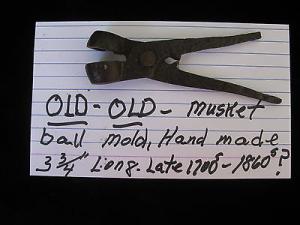 OLD - OLD - musket
ball mold, Hand made
3 3/4" Long. Late 1700s - 1860s?